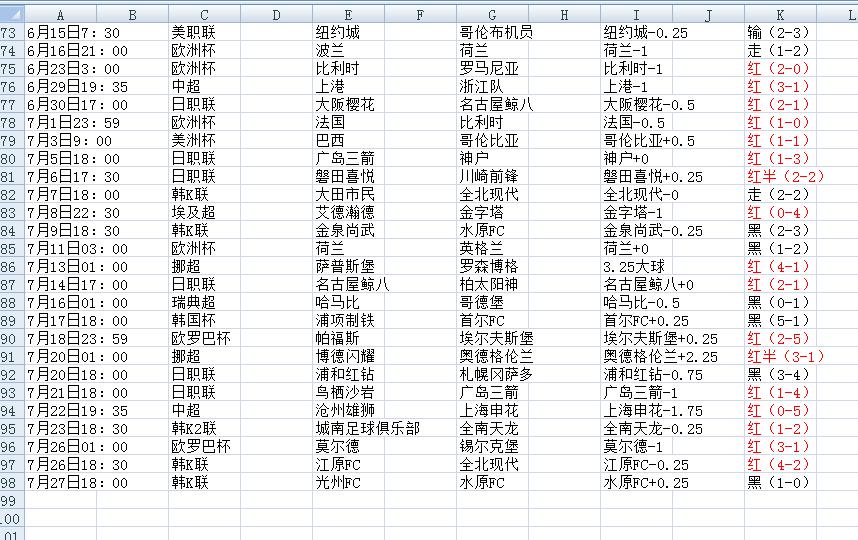 A B C D E F G H I J K L
73 6月15日7：30 美职联 纽约城 哥伦布机员 纽约城-0.25 输（2-3）
74 6月16日21：00 欧洲杯 波兰 荷兰 荷兰-1 走（1-2）
75 6月23日3：00 欧洲杯 比利时 罗马尼亚 比利时-1 红（2-0）
76 6月29日19：35 中超 上港 浙江队 上港-1 红（3-1）
77 6月30日17：00 日职联 大阪樱花 名古屋鲸八 大阪樱花-0.5 红（2-1）
78 7月1日23：59 欧洲杯 法国 比利时 法国-0.5 红（1-0）
79 7月3日9：00 美洲杯 巴西 哥伦比亚 哥伦比亚+0.5 红（1-1）
80 7月5日18：00 日职联 广岛三箭 神户 神户+0 红（1-3）
81 7月6日17：30 日职联 磐田喜悦 川崎前锋 磐田喜悦+0.25 红半（2-2）
82 7月7日18：00 韩K联 大田市民 全北现代 全北现代-0 走（2-2）
83 7月8日22：30 埃及超 艾德瀚德 金字塔 金字塔-1 红（0-4）
84 7月9日18：30 韩K联 金泉尚武 水原FC 金泉尚武-0.25 黑（2-3）
85 7月11日03：00 欧洲杯 荷兰 英格兰 荷兰+0 黑（1-2）
86 7月13日01：00 挪超 萨普斯堡 罗森博格 3.25大球 红（4-1）
87 7月14日17：00 日职联 名古屋鲸八 柏太阳神 名古屋鲸八+0 红（2-1）
88 7月16日01：00 瑞典超 哈马比 哥德堡 哈马比-0.5 黑（0-1）
89 7月17日18：00 韩国杯 浦项制铁 首尔FC 首尔FC+0.25 黑（5-1）
90 7月18日23：59 欧罗巴杯 帕福斯 埃尔夫斯堡 埃尔夫斯堡+0.25 红（2-5）
91 7月20日01：00 挪超 博德闪耀 奥德格伦兰 奥德格伦兰+2.25 红半（3-1）
92 7月20日18：00 日职联 浦和红钻 札幌冈萨多 浦和红钻-0.75 黑（3-4）
93 7月21日18：00 日职联 鸟栖沙岩 广岛三箭 广岛三箭-1 红（1-4）
94 7月22日19：35 中超 沧州雄狮 上海申花 上海申花-1.75 红（0-5）
95 7月23日18：30 韩K2联 城南足球俱乐部 全南天龙 全南天龙-0.25 红（1-2）
96 7月26日01：00 欧罗巴杯 莫尔德 锡尔克堡 莫尔德-1 红（3-1）
97 7月26日18：30 韩K联 江原FC 全北现代 江原FC-0.25 红（4-2）
98 7月27日18：00 韩K联 光州FC 水原FC 水原FC+0.25 黑（1-0）
99
100